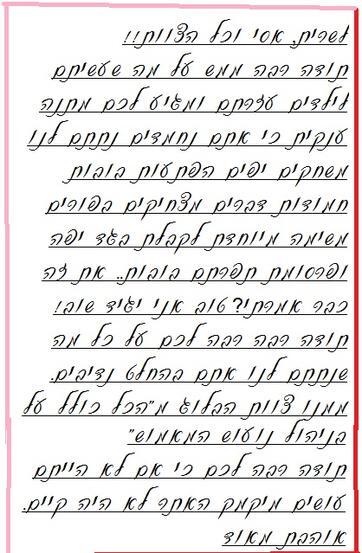 לשרית, אסי וכל הצוות!!
תודה רבה ממש על מה שעשיתם
לילדים עזרתם ומגיע לכם מתנה
ענקית כי אתם נחמדים נתתם לנו
משחקים יפים הפתעות בובות
חמודות דברים מצחיקים בפורים
משימה מיוחדת לקבלת בגד יפה
ופרסומת תפרתם בובות.. את זה
כבר אמרתי? טוב אני יגיד שוב!
תודה רבה רבה לכם על כל מה
שנתתם לנו אתם בהחלט נדיבים.
ממנו צוות הבלוג מ"הכל כולל על
בניהול נועוש המאמוש"
תודה רבה לכם כי אם לא הייתם
עושים מיקמק האתר לא היה קיים.
אוהבת מאוד